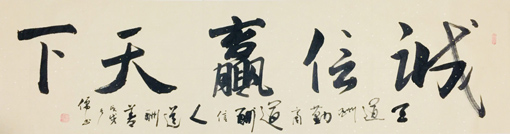 诚信赢天下
天道酬勤商道酬信人道酬善